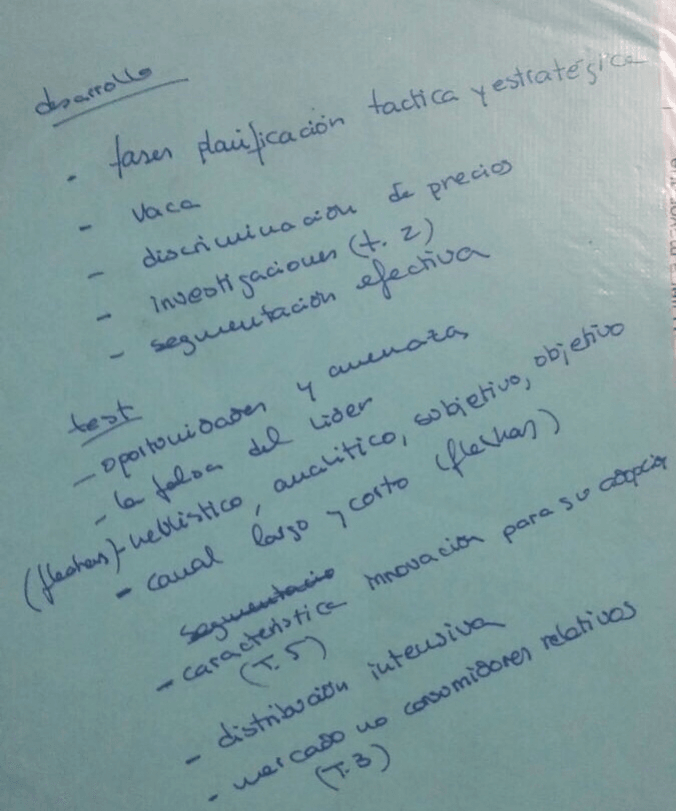 desarrollo
- fases planificación tactica y estratégica
- vaca
- discriminación de precios
- investigaciones (t. 2)
- segmentación efectiva
test
- oportunidades y amenazas
- la falsa del lider
(flechas) - heblistico, analitico, subjetivo, objetivo
- canal largo y corto (flechas)
segmentacio
- caracteristica innovación para su adopción
(T. 5)
- distribución intensiva
- mercado no consumidores relativos
(T. 3)